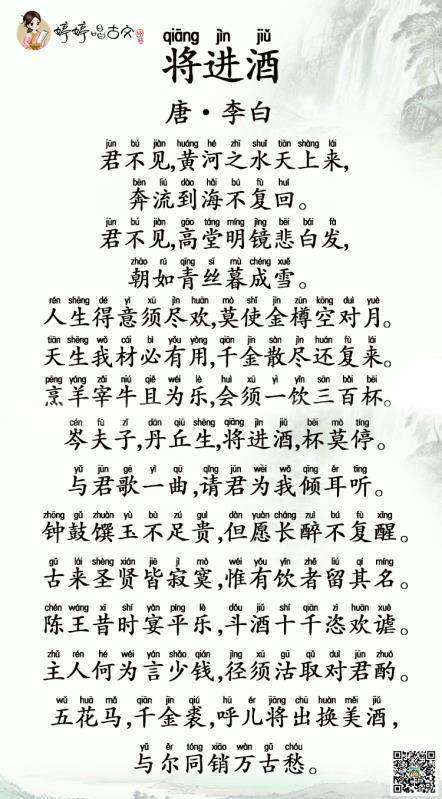 婷婷唱古文
qiāng jìn jiǔ
将进酒
唐·李白
jūn bú jiàn huáng hé zhī shuǐ tiān shàng lái
君不见,黄河之水天上来,
bēn liú dào hǎi bú fù huí
奔流到海不复回。
jūn bú jiàn gāo táng míng jìng bēi bái fà
君不见,高堂明镜悲白发,
zhāo rú qīng sī mù chéng xuě
朝如青丝暮成雪。
rén shēng dé yì xū jìn huān mò shǐ jīn zūn kōng duì yuè
人生得意须尽欢,莫使金樽空对月。
tiān shēng wǒ cái bì yǒu yòng qiān jīn sàn jìn huán fù lái
天生我材必有用,千金散尽还复来。
pēng yáng zǎi niú qiě wéi lè huì xū yì yǐn sān bǎi bēi
烹羊宰牛且为乐,会须一饮三百杯。
cén fū zǐ dān qiū shēng qiāng jìn jiǔ bēi mò tíng
岑夫子,丹丘生,将进酒,杯莫停。
yǔ jūn gē yì qǔ qǐng jūn wèi wǒ qīng ěr tīng
与君歌一曲,请君为我倾耳听。
zhōng gǔ zhuàn yù bù zú guì dàn yuàn cháng zuì bú fù xǐng
钟鼓馔玉不足贵,但愿长醉不复醒。
gǔ lái shèng xián jiē jì mò wéi yǒu yǐn zhě liú qí míng
古来圣贤皆寂寞,惟有饮者留其名。
chén wáng xī shí yàn píng lè dǒu jiǔ shí qiān zì huān xuè
陈王昔时宴平乐,斗酒十千恣欢谑。
zhǔ rén hé wéi yán shǎo qián jìng xū gū qǔ duì jūn zhuó
主人何为言少钱,径须沽取对君酌。
wǔ huā mǎ qiān jīn qiú hū ér jiāng chū huàn měi jiǔ
五花马,千金裘,呼儿将出换美酒,
yǔ ěr tóng xiāo wàn gǔ chóu
与尔同销万古愁。